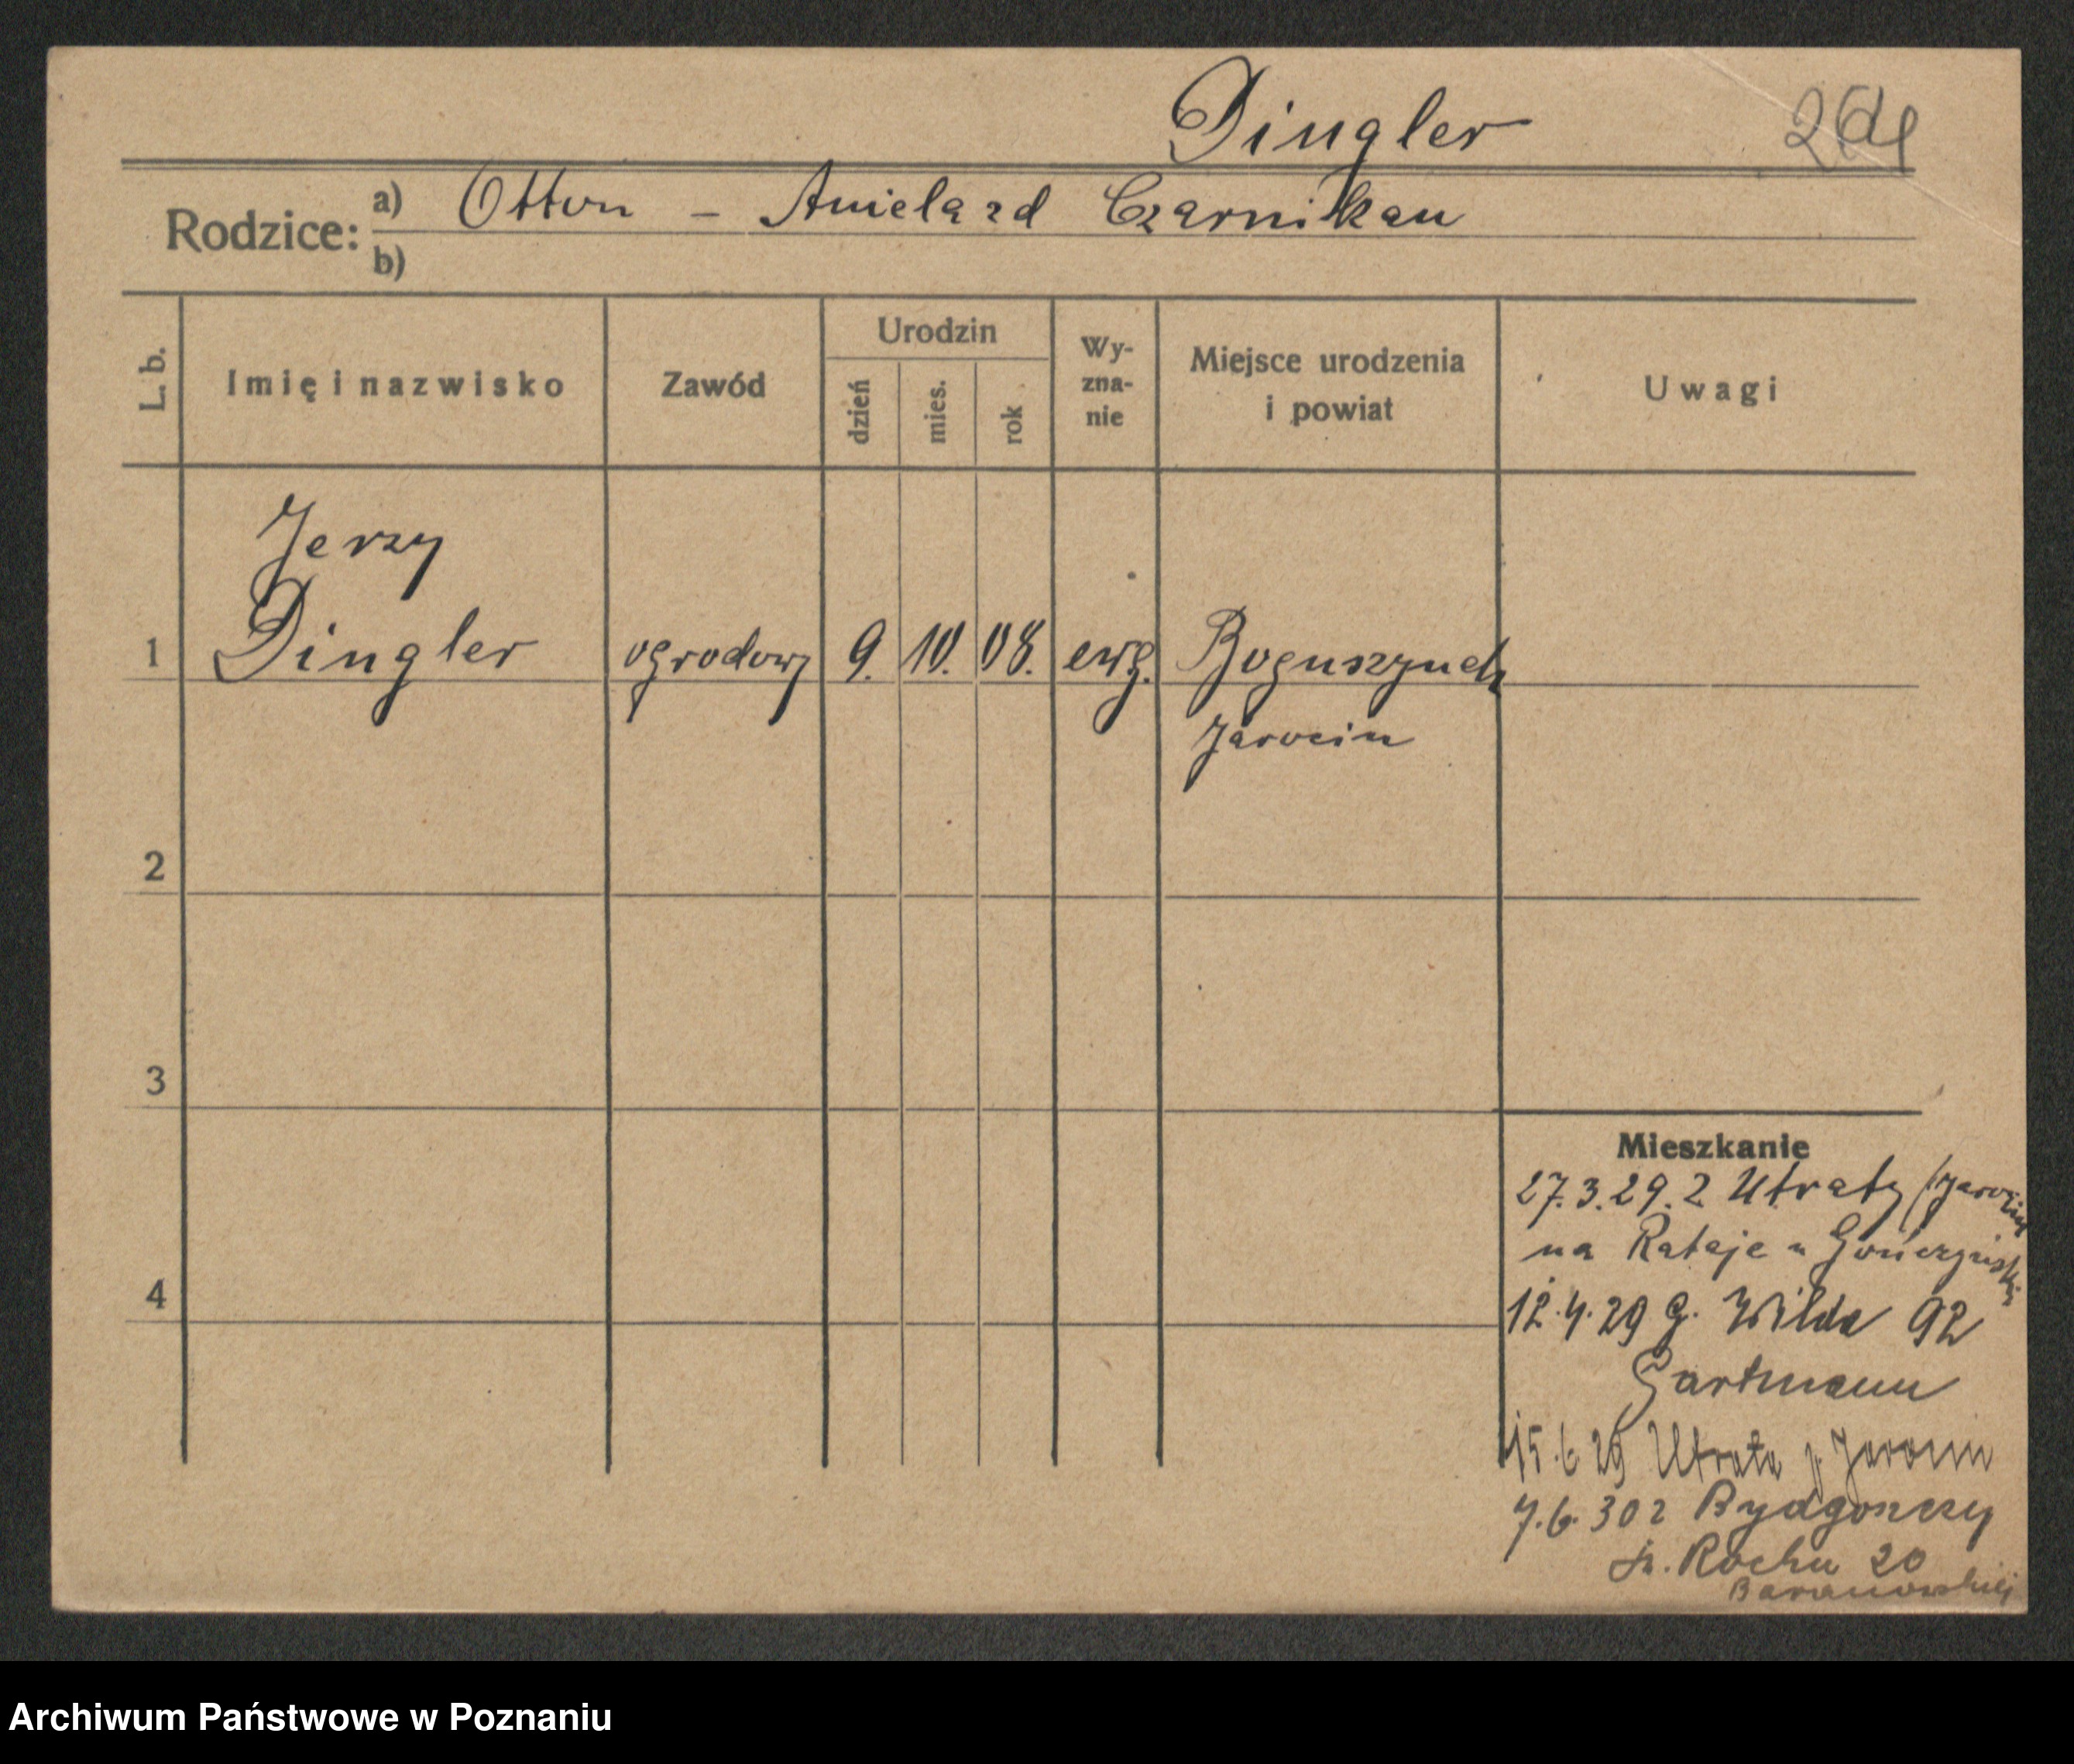 Dingler
Rodzice: a) Otton - Aniela zd Czarnikau
b)
L. b.
Imię i nazwisko
Zawód
Urodzin
dzień
mies.
rok
Wy-
zna-
nie
Miejsce urodzenia
i powiat
Uwagi
Jerzy
1 Dingler ogrodowy 9. 10. 08. ewg.
Jarocin
2
3
4
Mieszkanie
27.3.29. z Utraty / Jarocin
na Rataje u
12.4.29 G. Wilda 92
Gartmann
15.6.29 Utrata p. Jarocin
7.6.30 z Bydgoszczy
św. Rocha 20
Baranowskiej
Archiwum Państwowe w Poznaniu